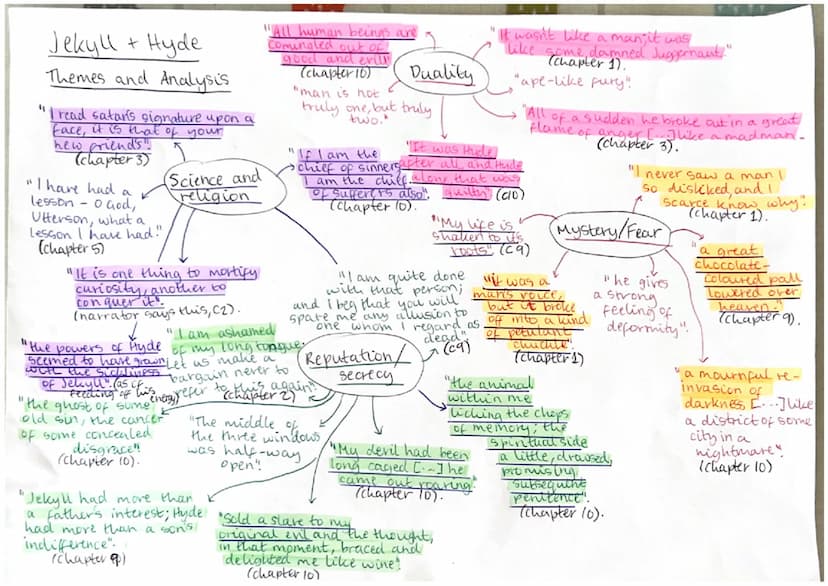 Jekyll + Hyde
Themes and Analysis
"All human beings are
comingled out of
good and evil"
(chapter 10)
"man is not
truly one, but truly
two."
Duality
"It wasn't like a man; it was
like some damned Juggernaut."
(chapter 1).
"ape-like fury".
"All of a sudden he broke out in a great
flame of anger [...] like a mad man-
(chapter 3).
"It was Hyde
after all, and Hyde
alone that was
guilty" (c10)
"I read satan's signature upon a
face, it is that of your
new friends"
(chapter 3)
Science and
religion
"If I am the
chief of sinners
I am the chief
of sufferers also".
(chapter 10).
"I have had a
lesson - O God,
Utterson, what a
lesson I have had."
(chapter 5)
"It is one thing to mortify
curiosity, another to
conquer it".
(narrator says this, C2).
"the powers of Hyde
seemed to have grown
with the sickliness
of Jekyll" (as if
feeding of his energy)
Mystery/Fear
"I never saw a man I
so disliked, and I
scarce know why".
(chapter 1).
"My life is
shaken to it's
roots" (c9)
"a great
chocolate-
coloured pall
lowered over
heaven."
(chapter 9).
"it was a
man's voice,
but it broke
off into a kind
of petulant
chuckle"
(chapter 1)
"he gives
a strong
feeling of
deformity".
"a mournful re-
invasion of
darkness, [...] like
a district of some
city in a
nightmare"
(chapter 10)
Reputation/
secrecy
"I am quite done
with that person;
and I beg that you will
spare me any allusion to
one whom I regard as
dead". (c9)
"I am ashamed
of my long tongue.
Let us make a
bargain never to
refer to this again"
(chapter 2)
"the ghost of some
old sin, the cancer
of some concealed
disgrace".
(chapter 10).
"The middle of
the three windows
was half-way
open".
"My devil had been
long caged [...] he
came out roaring".
(chapter 10).
"the animal
within me
licking the chops
of memory; the
spiritual side
a little, drowsed,
promising
subsequent
penitence".
(chapter 10).
"Jekyll had more than
a father's interest; Hyde
had more than a son's
indifference".
"Sold a slave to my
original evil and the thought,
in that moment, braced and
delighted me like wine".
(chapter 10)